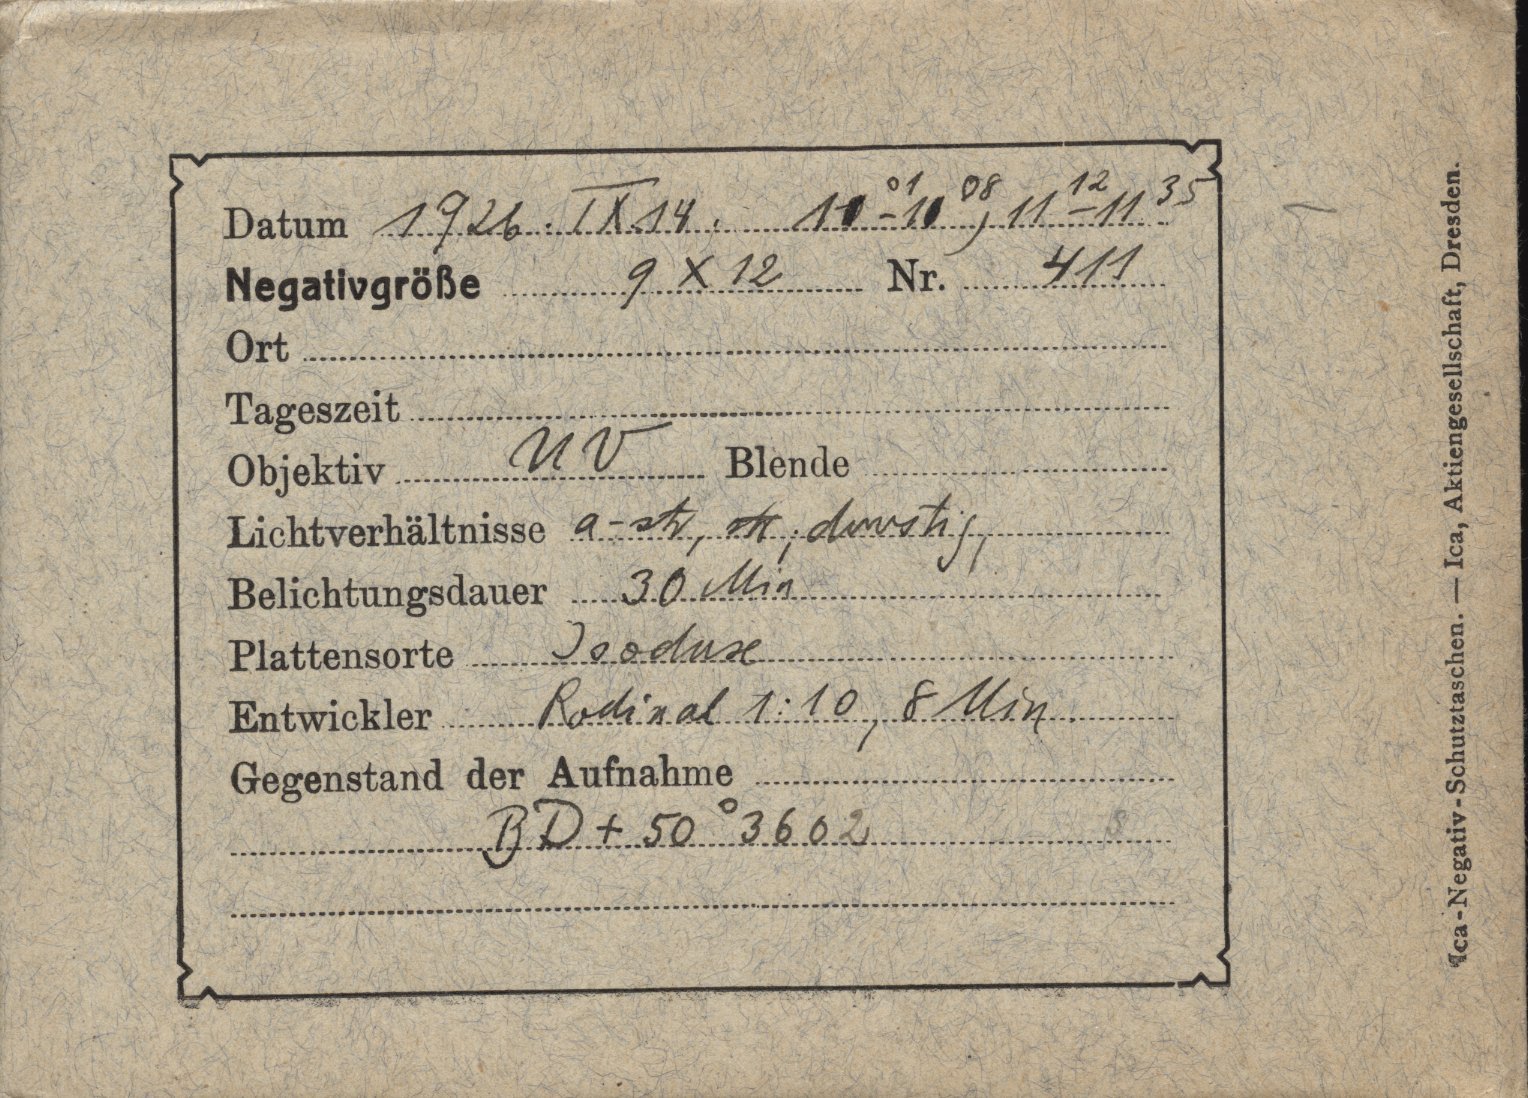 Datum 1926. IX.14. 11 01 - 11 08, 11 12 - 11 35
Negativgröße 9 X 12 Nr. 411
Ort
Tageszeit
Objektiv UV Blende
Lichtverhältnisse a-str, dunstig,
Belichtungsdauer 30 Min
Plattensorte Isoduxe
Entwickler Rodinal 1:10, 8 Min.
Gegenstand der Aufnahme
BD + 50° 3602
Ica-Negativ-Schutztaschen. — Ica, Aktiengesellschaft, Dresden.